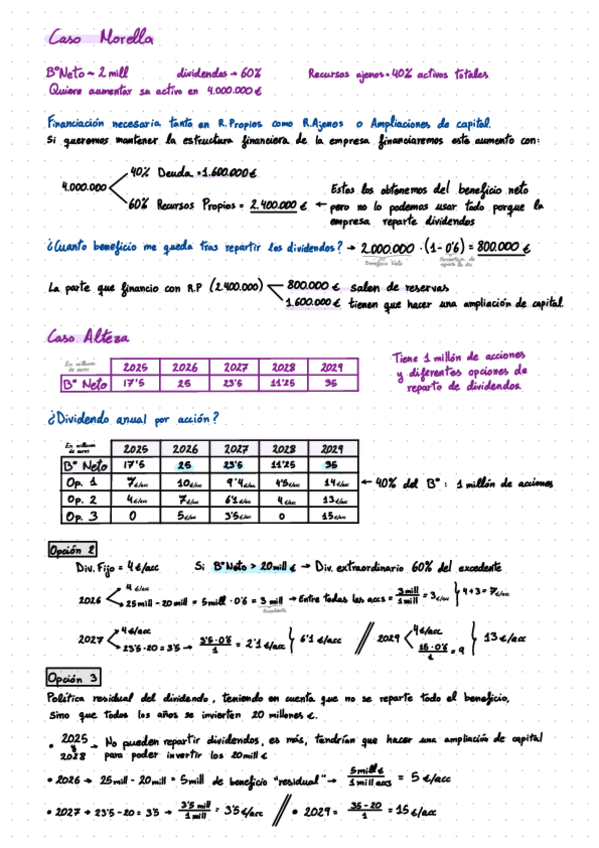 Caso Morella
Bº Neto ~ 2 mill dividendos → 60% Recursos ajenos = 40% activos totales
Quiere aumentar su activo en 4.000.000 €
Financiación necesaria tanto en R. Propios como R. Ajenos o Ampliaciones de capital.
Si queremos mantener la estructura financiera de la empresa financiaremos este aumento con:
4.000.000
40% Deuda = 1.600.000 €
60% Recursos Propios = 2.400.000 € ← Estos los obtenemos del beneficio neto
pero no lo podemos usar todo porque la
empresa reparte dividendos
¿Cuanto beneficio me queda tras repartir los dividendos? → 2.000.000 · (1-0'6) = 800.000 €
Beneficio Neto
La parte que financio con R.P (2.400.000)
800.000 € salen de reservas
1.600.000 € tienen que hacer una ampliación de capital.
Caso Alteza
En millones de euros 2025 2026 2027 2028 2029
Bº Neto 17'5 25 23'5 11'25 35
Tiene 1 millón de acciones
y diferentes opciones de
reparto de dividendos.
¿Dividendo anual por acción?
En millones de euros 2025 2026 2027 2028 2029
Bº Neto 17'5 25 23'5 11'25 35
Op. 1 7€/acc 10€/acc 9'4€/acc 4'5€/acc 14€/acc ← 40% del Bº : 1 millón de acciones
Op. 2 4€/acc 7€/acc 6'1€/acc 4€/acc 13€/acc
Op. 3 0 5€/acc 3'5€/acc 0 15€/acc
Opción 2
Div. Fijo = 4€/acc Si Bº Neto > 20 mill € → Div. extraordinario 60% del excedente
2026
4€/acc
25 mill - 20 mill = 5 mill · 0'6 = 3 mill → Entre todas las accs = 3 mill / 1 mill = 3€/acc } 4+3 = 7€/acc
2027
4€/acc
23'5-20 = 3'5 → 3'5·0'6 / 1 = 2'1 €/acc } 6'1 €/acc // 2029
4€/acc
15·0'6 / 1 = 9 } 13 €/acc
Opción 3
Política residual del dividendo, teniendo en cuenta que no se reparte todo el beneficio,
sino que todos los años se invierten 20 millones €.
• 2025 y 2028 → No pueden repartir dividendos, es más, tendrían que hacer una ampliación de capital
para poder invertir los 20 mill €
• 2026 → 25 mill - 20 mill = 5 mill de beneficio "residual" → 5 mill € / 1 mill accs = 5 €/acc
• 2027 → 23'5 - 20 = 3'5 → 3'5 mill / 1 mill = 3'5 €/acc // • 2029 = 35-20 / 1 = 15 €/acc